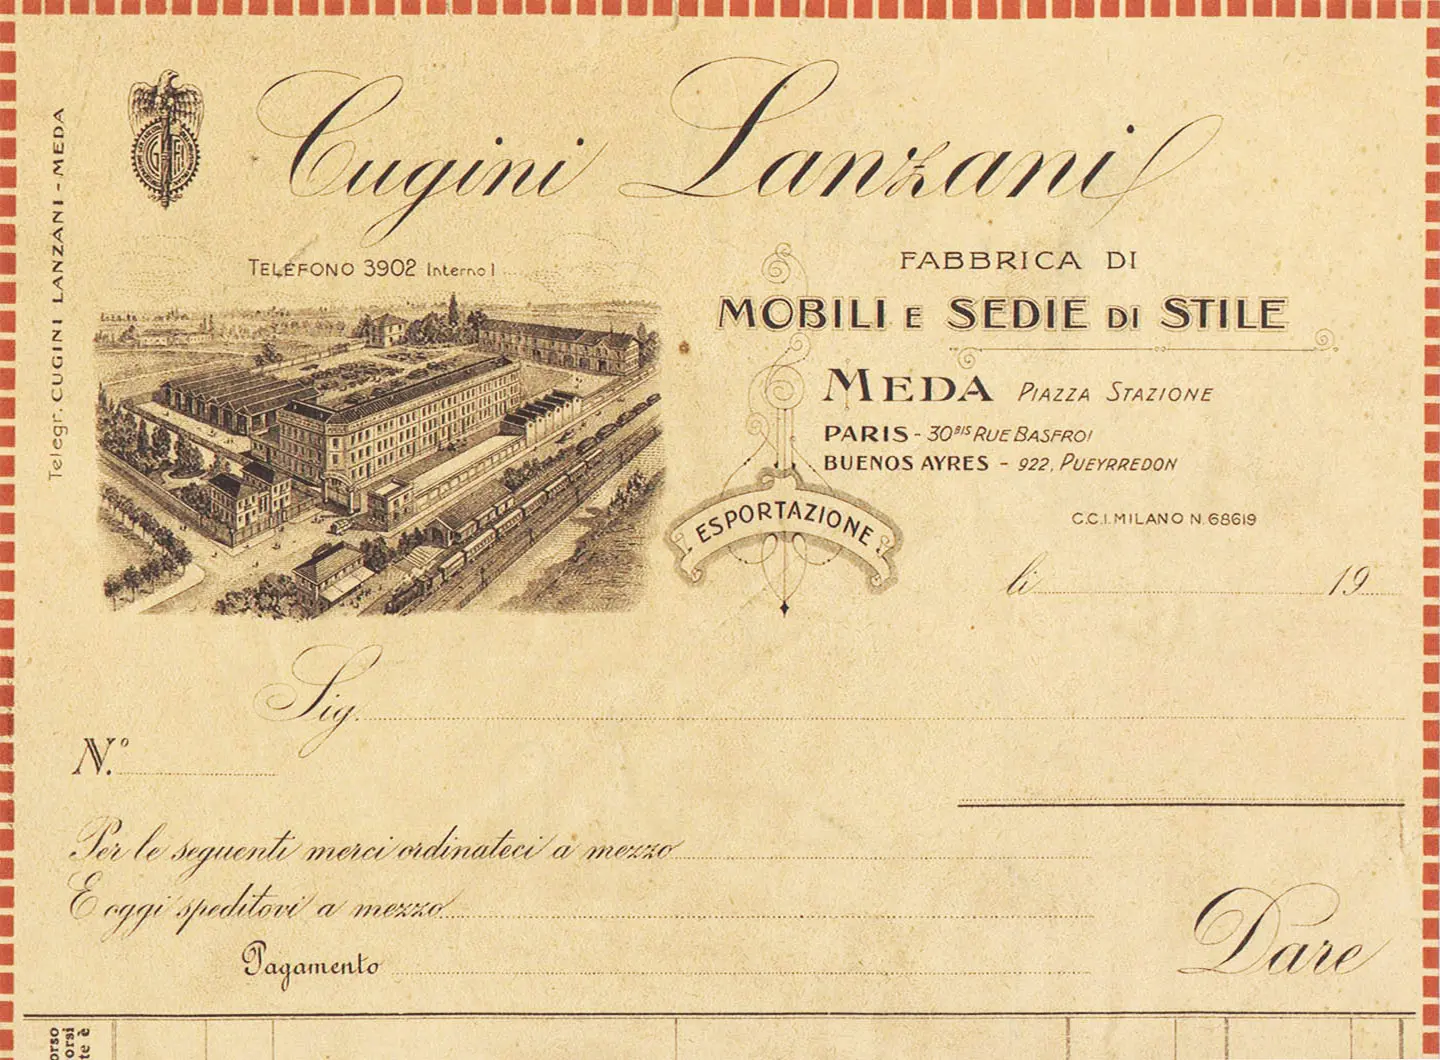 Cugini Lanzani
Telegr. CUGINI LANZANI - MEDA
TELEFONO 3902 Interno 1
FABBRICA DI
MOBILI E SEDIE DI STILE
MEDA PIAZZA STAZIONE
PARIS - 30BIS RUE BASFROI
BUENOS AYRES - 922, PUEYRREDON
ESPORTAZIONE
C.C.I. MILANO N. 68619
li 19
Sig.
N.º
Per le seguenti merci ordinateci a mezzo
E oggi speditovi a mezzo
Pagamento
Dare